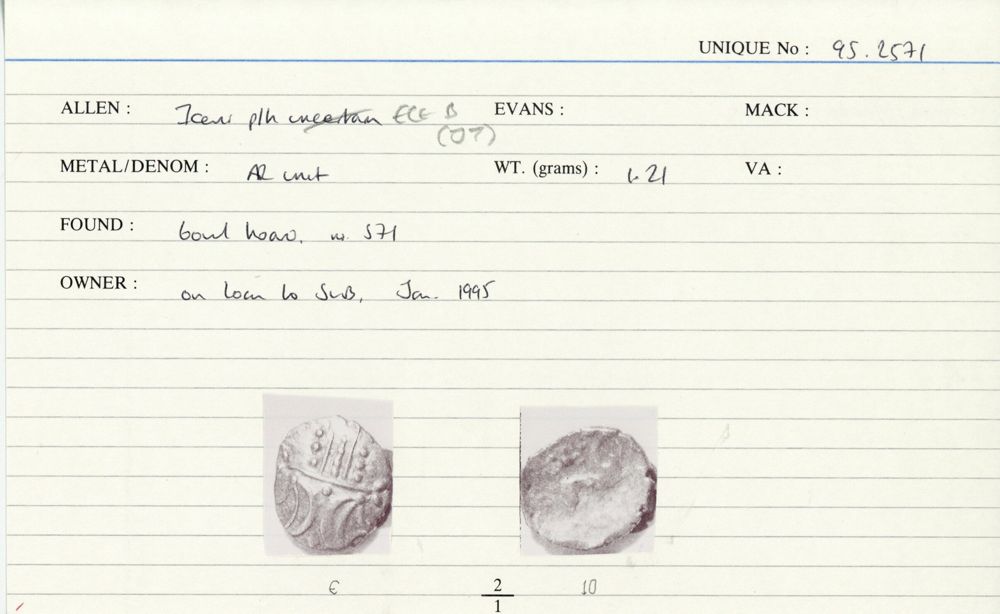 UNIQUE No : 95.2571
ALLEN : Iceni p/h uncertain ECE B EVANS : MACK :
(OT)
METAL/DENOM : AR unit WT. (grams) : 1.21 VA :
FOUND : bowl hoard, no. 571
OWNER : on loan to SWB, Jan. 1995
€ 2 10
1